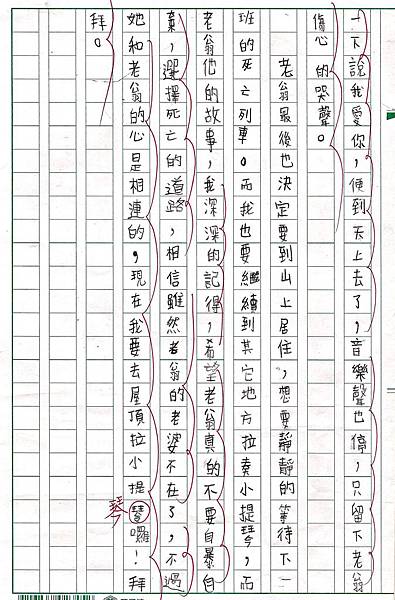 一下說我愛你，便到天上去了，音樂聲也停，只留下老翁
傷心的哭聲。
老翁最後也決定要到山上居住，想要靜靜的等待下一
班的死亡列車。而我也要繼續到其它地方拉奏小提琴，而
老翁他的故事，我深深的記得，希望老翁真的不要自暴自
棄，選擇死亡的道路，相信雖然老翁的老婆不在了，不過
她和老翁的心是相連的，現在我要去屋頂拉小提琴囉！拜
琴
拜。